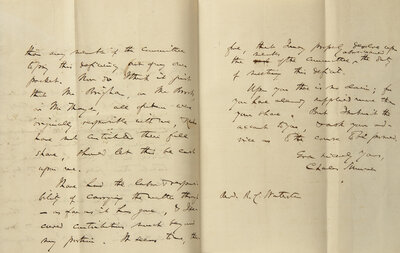 than any member of the Committee
to pay this deficiency out of my own
pocket. Nor do I think it just
that Mr Brigham, or Mr Brooks
or Mr Thayer, all of whom were
originally responsible with me, & who
have not contributed their full
share, should let this be cast
upon me.
I have had the labor & responsi-
bility of carrying the matter through
— as far as it has gone, & I have
contributions much beyond
my portion. It seems to me, then
fore, that I may properly devolve upon
the members of the Committee, the duty
of meeting this deficit.
Upon you there is no claim; for
you have already supplied more than
your share. But I submit the
account to you, & ask your ad-
vice as to the course to be pursued.
Ever sincerely yours,
Charles Sumner
Revd. R. C. Waterston